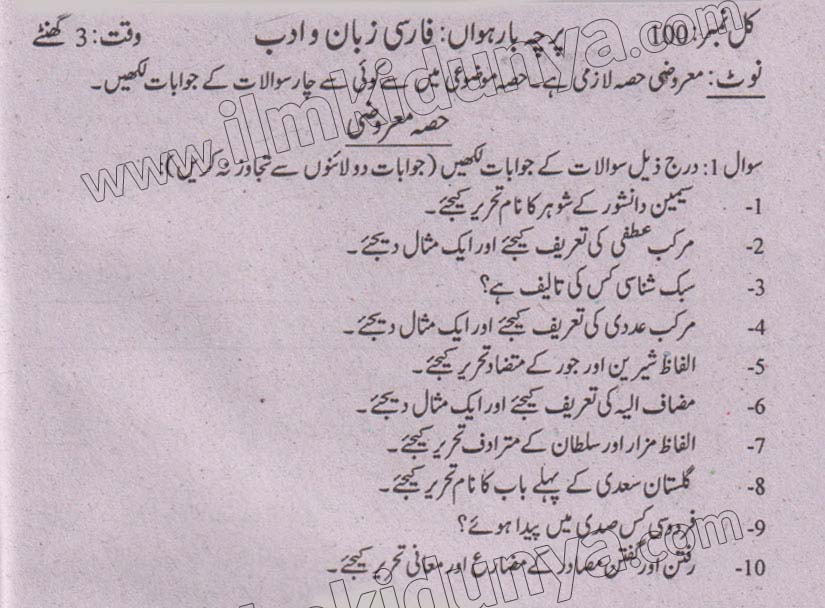 کل نمبر: 100 پرچہ بارہواں: فارسی زبان و ادب وقت: 3 گھنٹے
نوٹ: معروضی حصہ لازمی ہے۔ حصہ موضوعی میں سے کوئی سے چار سوالات کے جوابات لکھیں۔
حصہ معروضی
سوال 1: درج ذیل سوالات کے جوابات لکھیں (جوابات دو لائنوں سے تجاوز نہ کریں):
1- سیمین دانشور کے شوہر کا نام تحریر کیجئے۔
2- مرکب عطفی کی تعریف کیجئے اور ایک مثال دیجئے۔
3- سبک شناسی کس کی تالیف ہے؟
4- مرکب عددی کی تعریف کیجئے اور ایک مثال دیجئے۔
5- الفاظ شیرین اور جور کے متضاد تحریر کیجئے۔
6- مضاف الیہ کی تعریف کیجئے اور ایک مثال دیجئے۔
7- الفاظ مزار اور سلطان کے مترادف تحریر کیجئے۔
8- گلستان سعدی کے پہلے باب کا نام تحریر کیجئے۔
9- فردوسی کس صدی میں پیدا ہوئے؟
10- رفتن اور گفتن مصادر کے مضارع اور معانی تحریر کیجئے۔
www.ilmkidunya.com
ilmkidunya.com